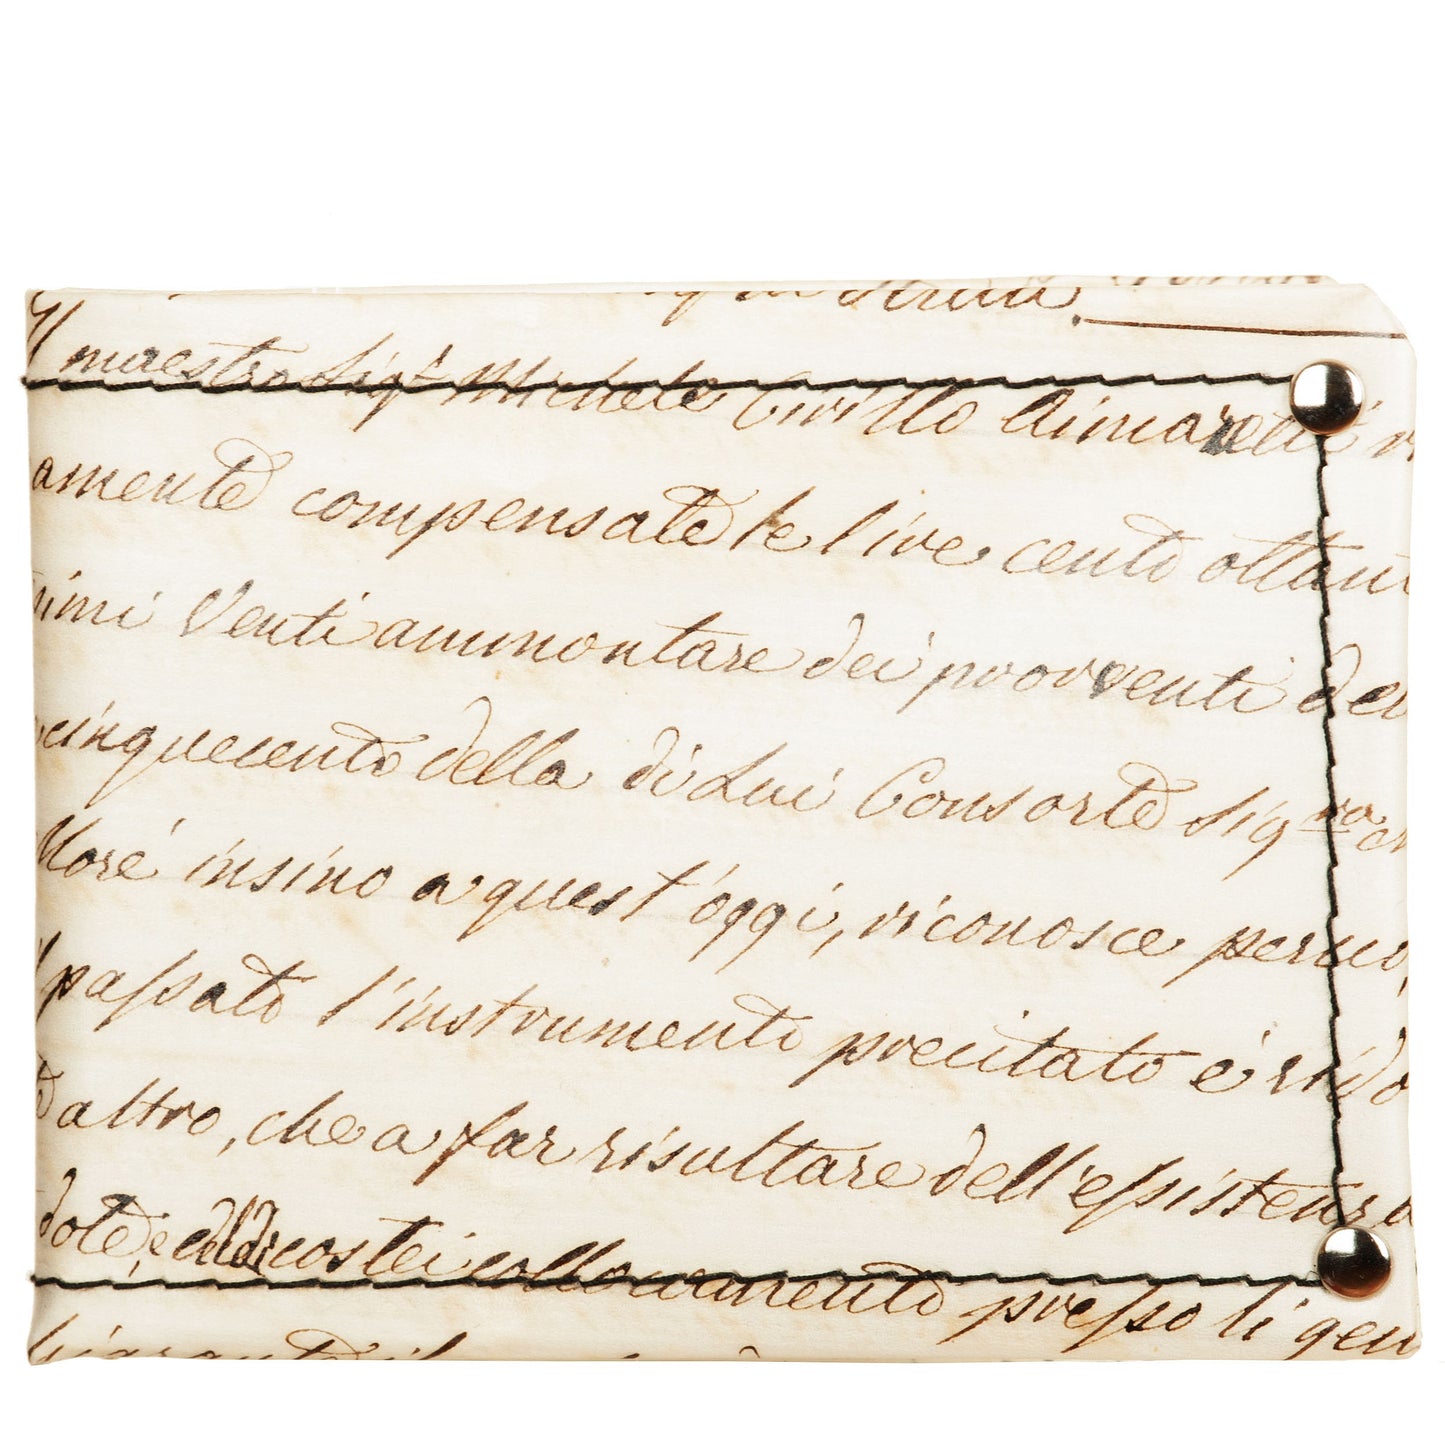 Il maestro Sigr Michele Cirillo Aimaretti
amente compensate le lire cento ottant
nimi Venti ammontare dei provventi del
cinquecento della di Lui Consorte Sigra
Moré insino a quest'oggi, riconosce per
il passato l'instrumento precitato é rido
d'altro, che a far risultare dell'essistenza
dote, e di costei collocamento presso li gen